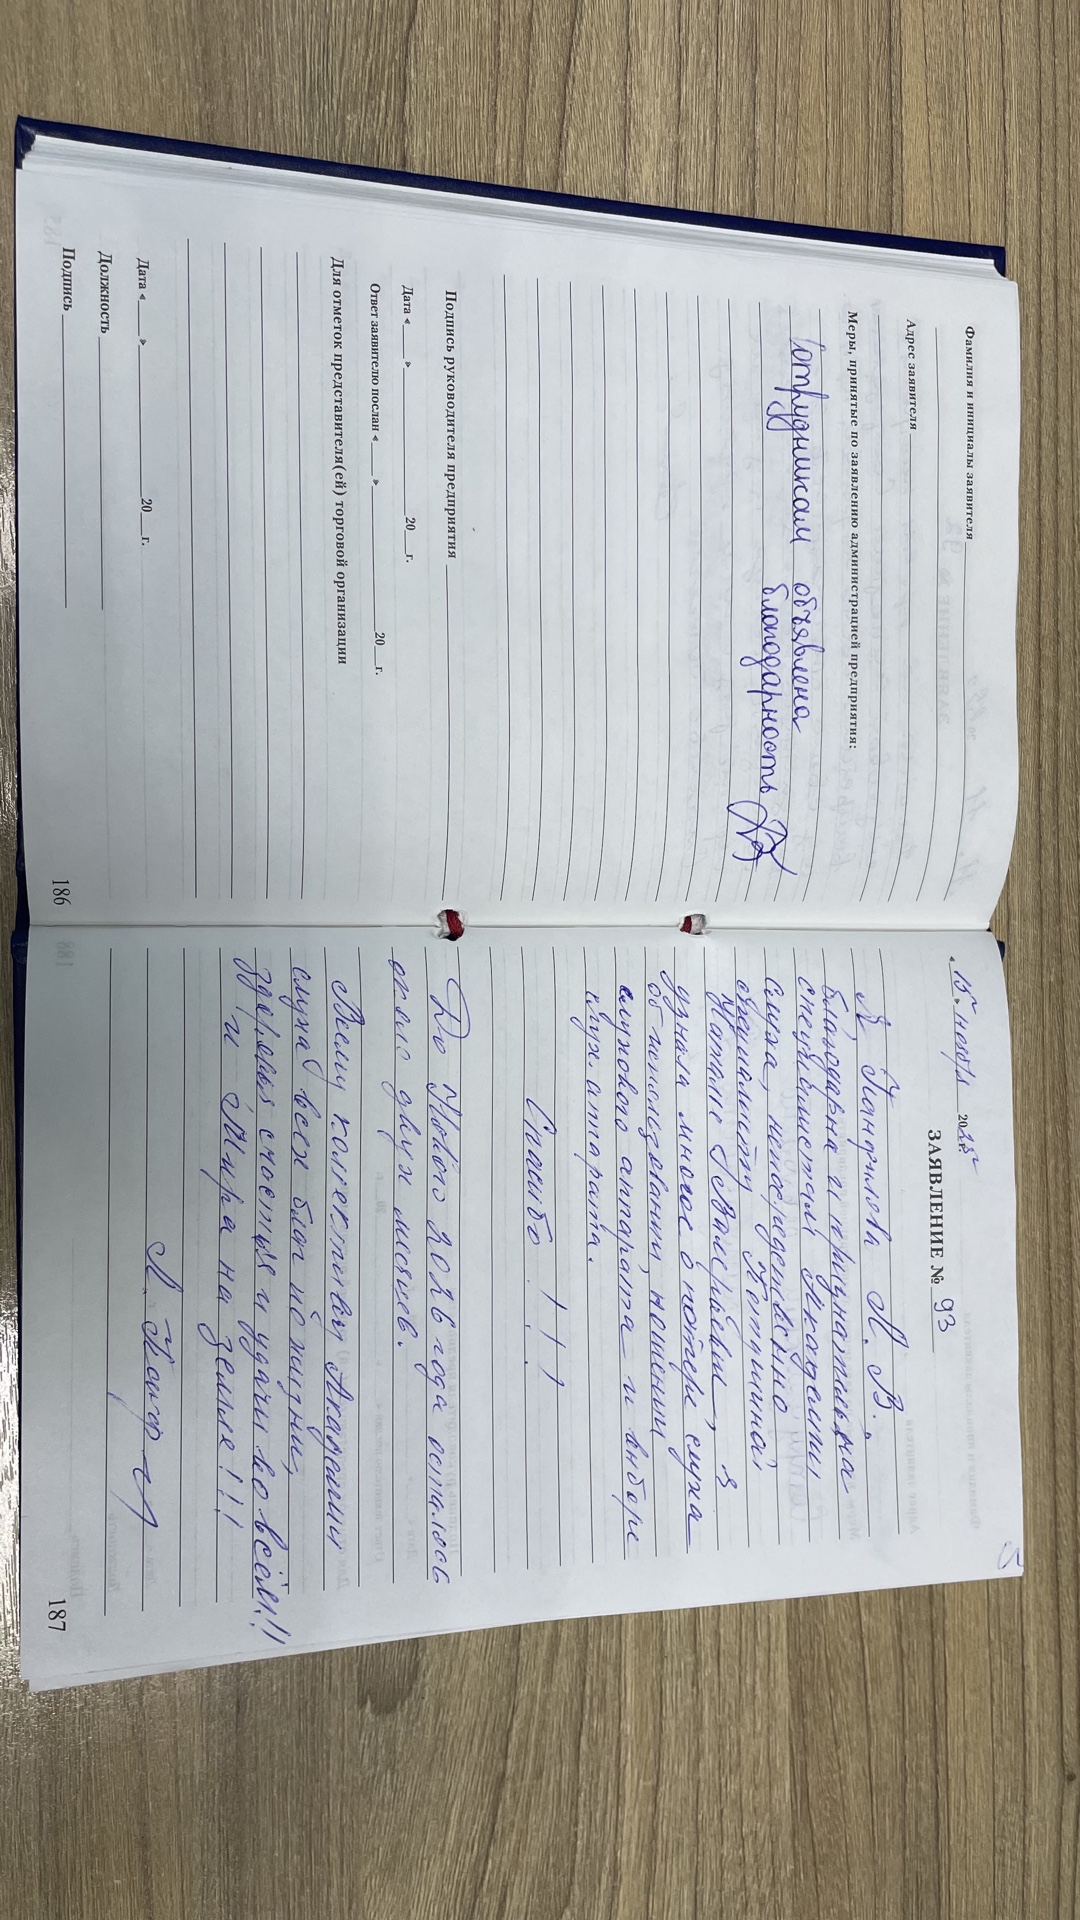 Фамилия и инициалы заявителя
Адрес заявителя
Меры, принятые по заявлению администрацией предприятия:
Сотрудникам объявлена
благодарность
Подпись руководителя предприятия
Дата « » 20 г.
Ответ заявителю послан « » 20 г.
Для отметок представителя(ей) торговой организации
Дата « » 20 г.
Должность
Подпись
186
«15» ноября 2025 г.
ЗАЯВЛЕНИЕ № 93
Я, Л. В.,
благодарна и признательна
специалистам Академии
слуха, непосредственно
специалисту
Наталье Валерьевне, я
узнала многое о потере слуха
об использовании, ношении
слухового аппарата и выборе
слух. аппарата.
Спасибо!!!
До Нового 2026 года осталось
около двух месяцев.
Всему коллективу Академии
слуха всех благ по жизни,
здоровья счастья и удачи во всём!!!
и Мира на земле!!!
187